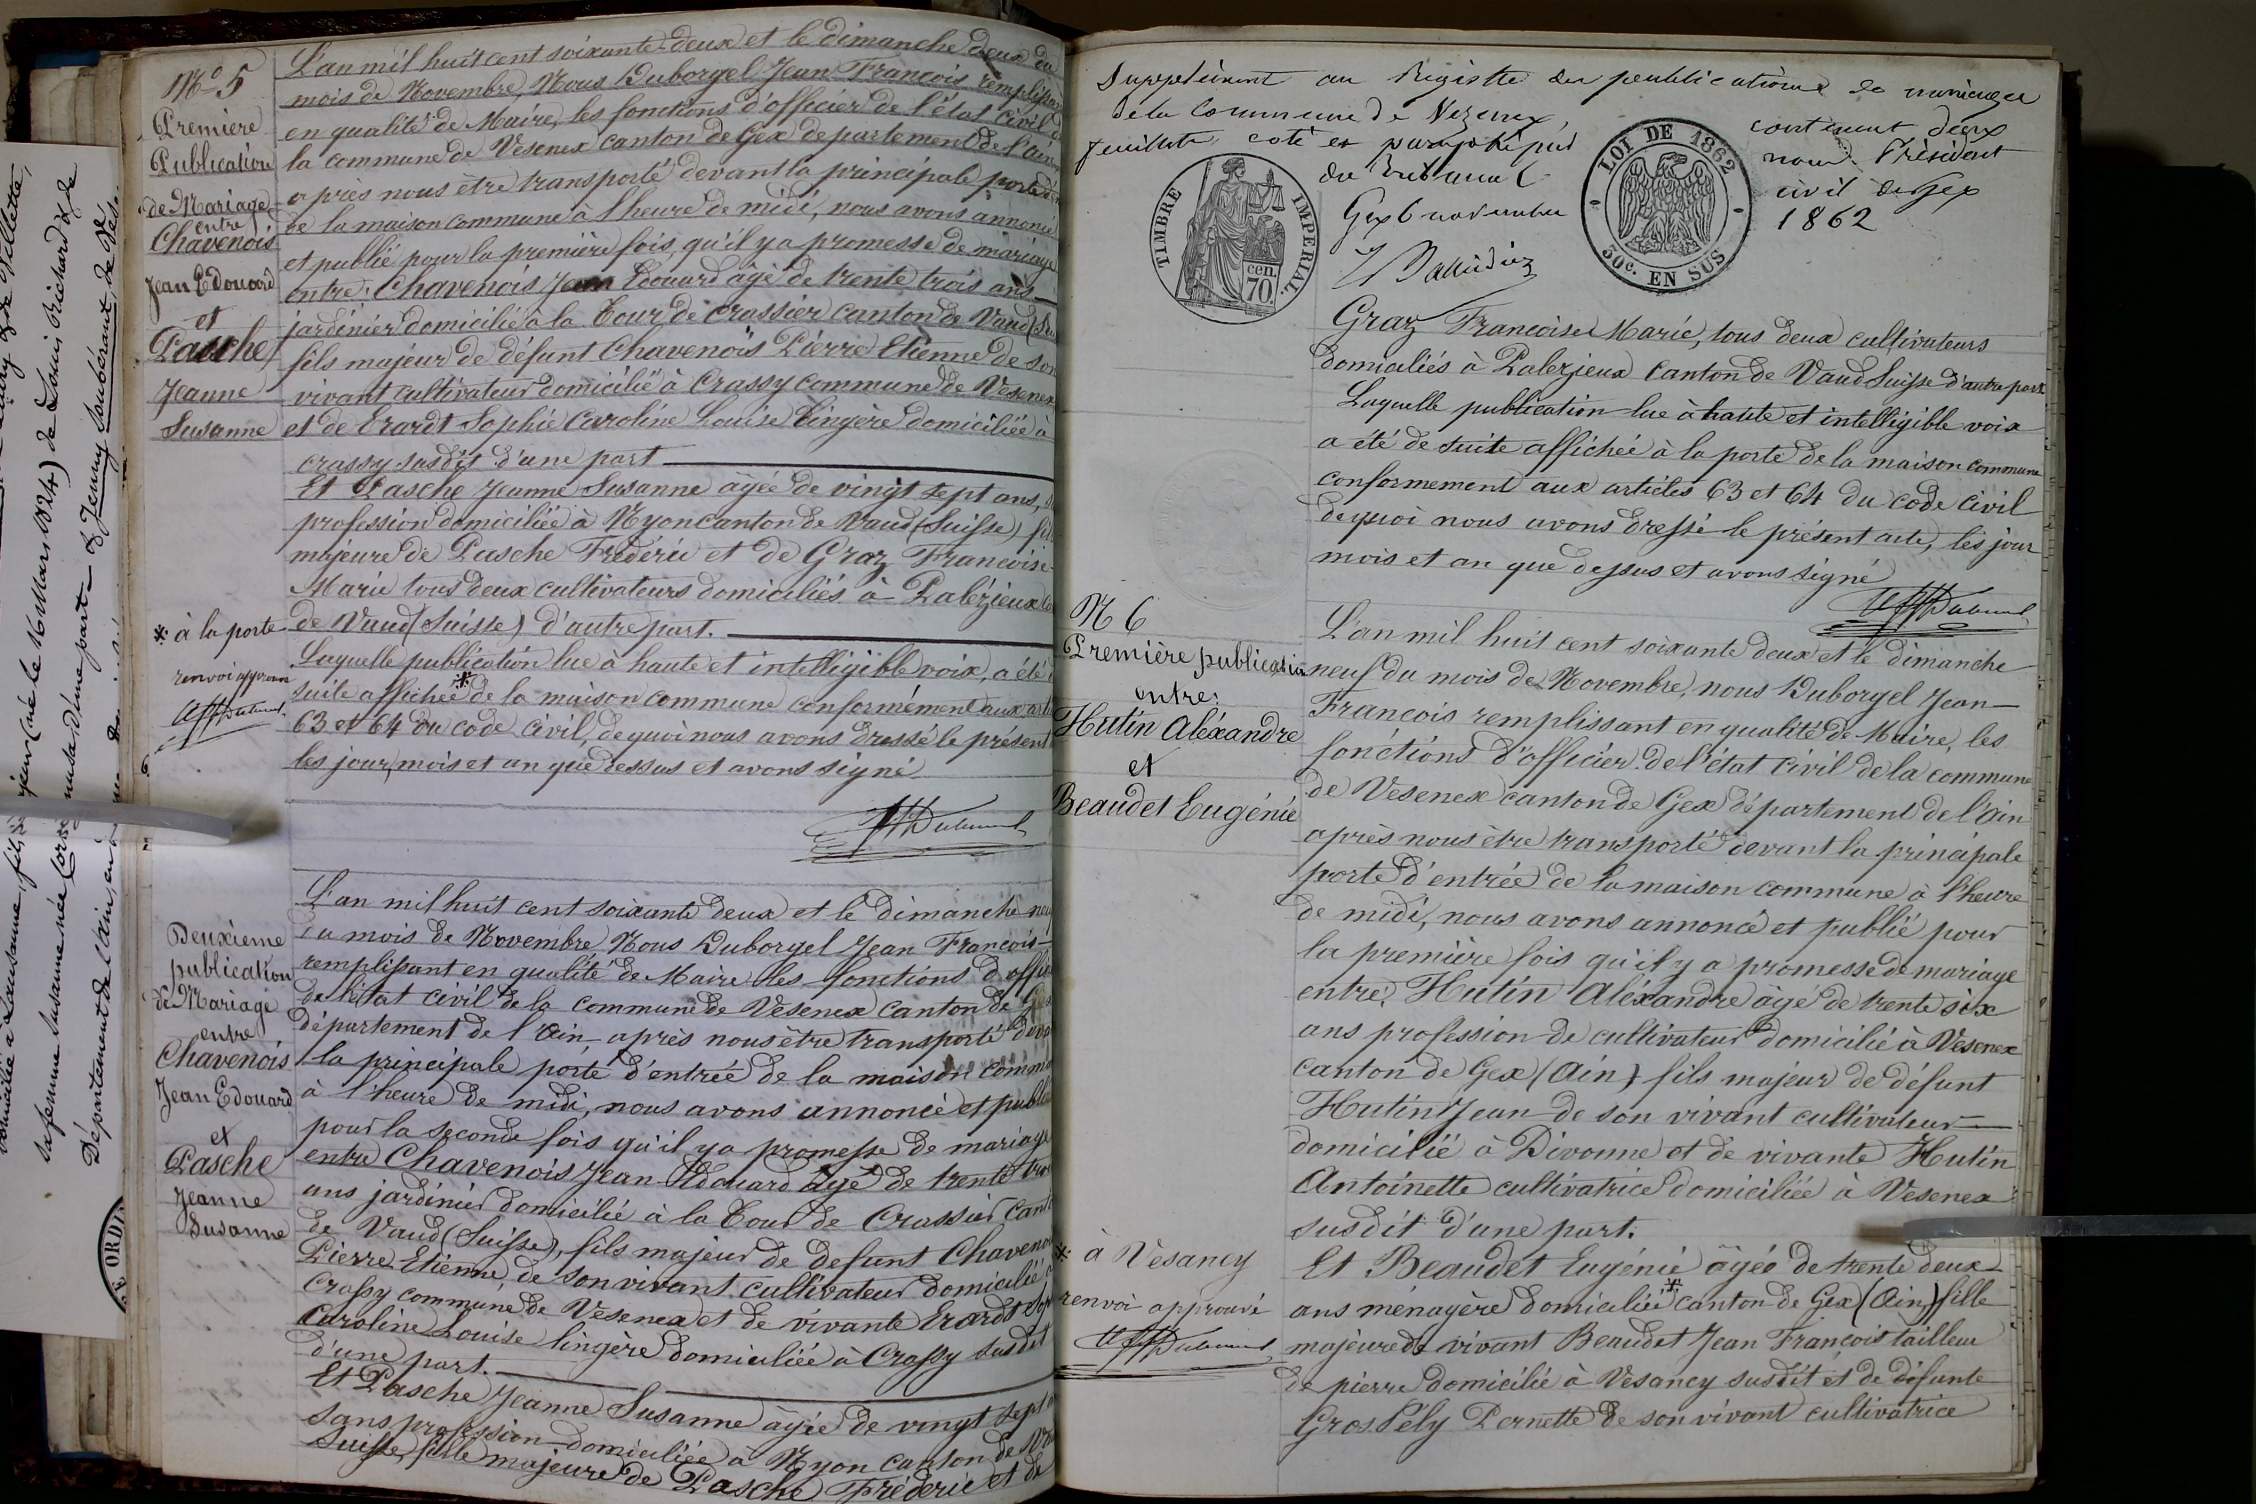 N.º 5
Première
Publication
de Mariage
entre
Chavenois
Jean Edouard
et
Pasche
Jeanne
Susanne
L'an mil huit cent soixante-deux et le dimanche deux du
mois de Novembre, Nous Duborgel Jean François, remplissant
en qualité de Maire, les fonctions d'officier de l'état civil
la commune de Vesenex canton de Gex departement de l'Ain
après nous être transporté devant la principale porte
de la maison commune à l'heure de midi, nous avons annoncé
et publié pour la première fois, qu'il y a promesse de mariage
entre: Chavenois Jean Edouard âgé de trente trois ans
jardinier domicilié à la Tour de Crassier Canton de Vaud
fils majeur de défunt Chavenois Pierre Etienne de son
vivant cultivateur domicilié à Crassy commune de Vesenex
et de Erardt Sophie Caroline Louise lingère domiciliée à
Crassy susdit d'une part
Et Pasche Jeanne Susanne âgée de vingt sept ans,
profession domiciliée à Nyon canton de Vaud (Suisse)
majeure de Pasche Fréderic et de Graz Françoise
Marie tous deux cultivateurs domiciliés à Palézieux
de Vaud (Suisse) d'autre part.
Laquelle publication lue à haute et intelligible voix, a été
suite affichée * de la maison commune conformément aux
63 et 64 du code civil, de quoi nous avons dressé le présent
les jour, mois et an que dessus et avons signé
* à la porte
renvoi approuvé
Deuxieme
publication
de Mariage
entre
Chavenois
Jean Edouard
et
Pasche
Jeanne
Susanne
L'an mil huit cent soixante deux et le dimanche neuf
du mois de Novembre Nous Duborgel Jean François
remplissant en qualité de Maire les fonctions d'
de l'état civil de la commune de Vesenex canton de Gex
département de l'Ain après nous être transporté
la principale porte d'entrée de la maison
à l'heure de midi, nous avons annoncé et
pour la seconde fois qu'il y a promesse de mariage
entre Chavenois Jean Edouard âgé de trente
ans jardinier domicilié à la Tour de Crassier
de Vaud (Suisse), fils majeur de defunt
Pierre Etienne, de son vivant cultivateur domicilié
Crassy commune de Vesenex et de vivante Erardt
Caroline Louise lingère domiciliée à Crassy susdit
d'une part.
Et Pasche Jeanne Susanne âgée de vingt sept
sans profession domiciliée à Nyon canton de
Suisse, fille majeure de Pasche Fréderic et de
Département de l'Ain
Supplément au Registre des publications de mariages
de la Commune de Vezenex,
contenant deux
feuillets coté et paraphé par
nous Président
du Tribunal
civil de Gex
Gex 6 novembre
1862
TIMBRE IMPERIAL.
cen.
70.
LOI DE 1862
30c. EN SUS
Graz Françoise Marie, tous deux cultivateurs
domiciliés à Palezieux Canton de Vaud Suisse d'autre part
Laquelle publication lue à haute et intelligible voix
a été de suite affichée à la porte de la maison commune
conformement aux articles 63 et 64 du code civil
de quoi nous avons dressé le présent acte, les jour
mois et an que dessus et avons signé
N 6
Première publication
entre:
Hutin Aléxandre
et
Beaudet Eugénie
L'an mil huit cent soixante deux et le dimanche
neuf du mois de Novembre, nous Duborgel Jean
François remplissant en qualité de Maire, les
fonctions d'officier de l'état civil de la commune
de Vesenex canton de Gex département de l'Ain
après nous être transporté devant la principale
porte d'entrée de la maison commune à l'heure
de midi, nous avons annoncé et publié pour
la première fois qu'il y a promesse de mariage
entre, Hutin Aléxandre âgé de trente six
ans profession de cultivateur domicilié à Vesenex
canton de Gex (Ain) fils majeur de défunt
Hutin Jean de son vivant cultivateur
domicilié à Divonne et de vivante Hutin
Antoinette cultivatrice domiciliée à Vesenex
susdit d'une part.
Et Beaudet Eugénie âgée de trente deux
ans ménagère domiciliée * canton de Gex (Ain) fille
majeure de vivant Beaudet Jean François tailleur
de pierre domicilié à Vesancy susdit et de défunte
Gros Pély Pernette de son vivant cultivatrice
* à Vesancy
renvoi approuvé